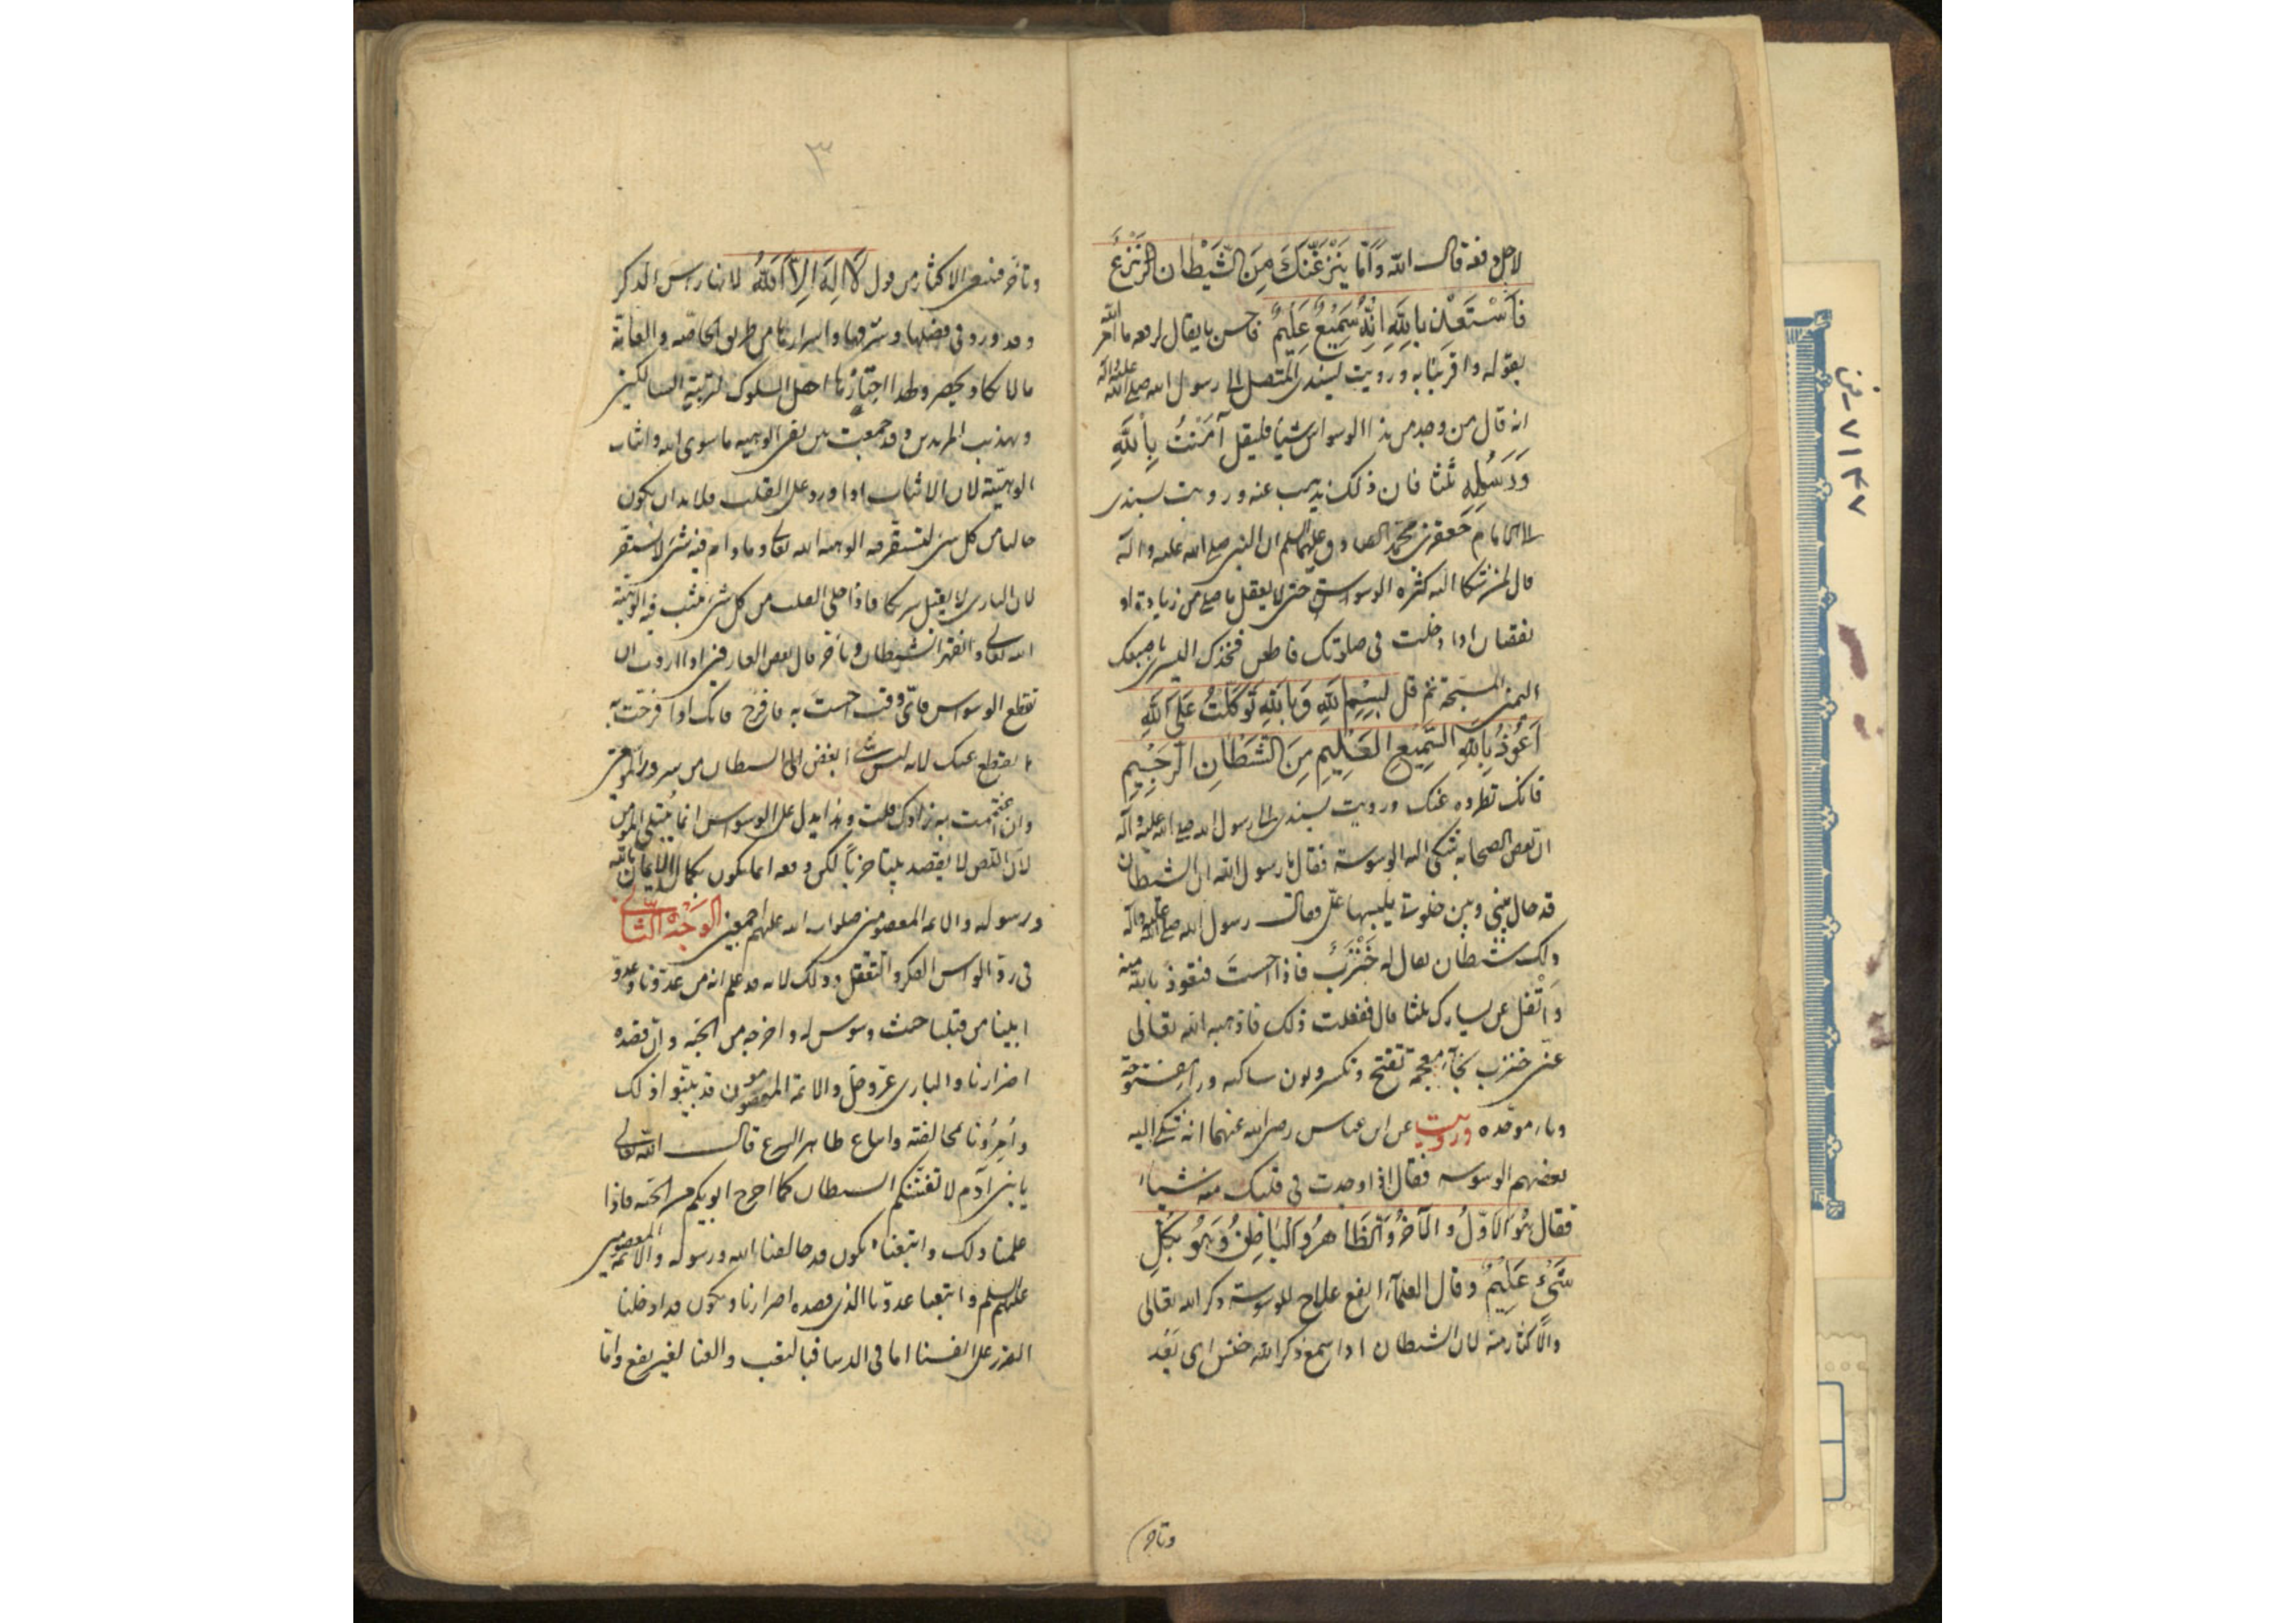 لاجل دفعه قال الله وَاِمَّا يَنْزَغَنَّكَ مِنَ الشَّيْطَانِ نَزْغٌ
فَاسْتَعِذْ بِاللّٰهِ اِنَّهُ سَمِيعٌ عَلِيمٌ فاحسن ما يقال لدفعه ما امر الله
بقوله وا قربنا به ورويت بسندى المتصل الى رسول الله صلى الله عليه وآله
انه قال من وجد من هذا الوسواس شيئا فليقل آمَنْتُ بِاللّٰهِ
وَرَسُلِهِ ثلثا فان ذلك يذهب عنه ورويت بسندى
الى الامام جعفر بن محمد الصادق عليهما السلم ان النبى صلى الله عليه وآله
قال لمن شكا اليه كثرة الوسواس حتى لا يعقل ما صلى من زيادة او
نقصان اذا دخلت فى صلوتك فاطعن فخذك اليسرى باصبعك
اليمنى المسبحة ثم قل بِسْمِ اللّٰهِ وَبِاللّٰهِ تَوَكَّلْتُ عَلَى اللّٰهِ
اَعُوذُ بِاللّٰهِ السَّمِيعِ الْعَلِيمِ مِنَ الشَّيْطَانِ الرَّجِيمِ
فانك تطرده عنك ورويت بسندى الى رسول الله صلى الله عليه وآله
ان بعض الصحابة شكى اليه الوسوسة فقال يا رسول الله ان الشيطان
قد حال بينى وبين صلوتى يلبسها علىّ فقال رسول الله صلى الله عليه وآله
ذلك شيطان يقال له خَنْزَبٌ فاذا احسست فتعوذ بالله منه
وَاتْفُل عن يسارك ثلثا قال ففعلت ذلك فاذهبه الله تعالى
عنى خنزب بخآء معجمة تفتح وتكسر ونون ساكنه وزاى مفتوحة
وباء موحده ورويت عن ابن عباس رضى الله عنهما انه شكى اليه
بعضهم الوسوسه فقال اذا وجدت فى قلبك منه شيئا
فقال هُوَ الْاَوَّلُ وَالْآخِرُ وَالظَّاهِرُ وَالْبَاطِنُ وَهُوَ بِكُلِّ
شَىْءٍ عَلِيمٌ وقال العلمآء انفع علاج للوسوسة ذكر الله تعالى
والاكثار منه لان الشيطان اذا سمع ذكر الله خنس اى بَعُدَ
وتاخر
٣
وتأخر فينبغى الاكثار من قول لَا اِلٰهَ اِلَّا اللّٰهُ لانها رأس الذكر
وقد ورد فى فضلها وشرفها واسرارها من طريق الخاصة والعامة
ما لا يكاد يحصر ولهذا اختارها اهل السلوك لتربية السالكين
وتهذيب المريدين وقد جمعت بين نفى الوهيه ما سوى الله واثبات
الوهيته لان الاثبات اذا ورد على القلب فلا بد ان يكون
خاليا من كل شئ لتستقر فيه الوهية الله تعالى وما دام فيه شئ لا تستقر
لان البارى لا يقبل شريكا فاذا خلى القلب من كل شئ يثبت فيه الوهية
الله تعالى وانقهر الشيطان وتأخر قال بعض العارفين اذا اردت ان
تقطع الوسواس فاىّ وقت احسست به فافرح فانك اذا فرحت به
انقطع عنك لانه ليس شئ ابغض الى الشيطان من سرور المؤمن
وان اغتممت به زادك قلت وهذا يدل على الوسواس انما يبتلى المؤمن
لان اللص لا يقصد بيتا خربا لكن دفعه انما يكون بكمال الايمان بالله
ورسوله والائمه المعصومين صلوات الله عليهم اجمعين الوَجْهُ الثَّانى
فى ردّ الوسواس الفكر والتعقل وذلك لانه قد علم انه من عدونا وعدو
ابينا من قبلنا حيث وسوس له واخرجه من الجنه وان قصده
اضرارنا والبارى عزّ وجلّ والائمة المعصومون قد بيّنوا ذلك
وأَمَرُونا بمخالفته واتباع ظاهر الشرع قال الله تعالى
يا بنى آدم لا يفتننكم الشيطان كما اخرج ابويكم من الجنه فاذا
علمنا ذلك واتبعناه نكون قد خالفنا الله ورسوله والائمة المعصومين
عليهم السلم واتبعنا عدوّنا الذى قصده اضرارنا ونكون قد ادخلنا
الضرر على انفسنا اما فى الدنيا فبالتعب والعنا لغير نفع وامّا
٧١٤٧